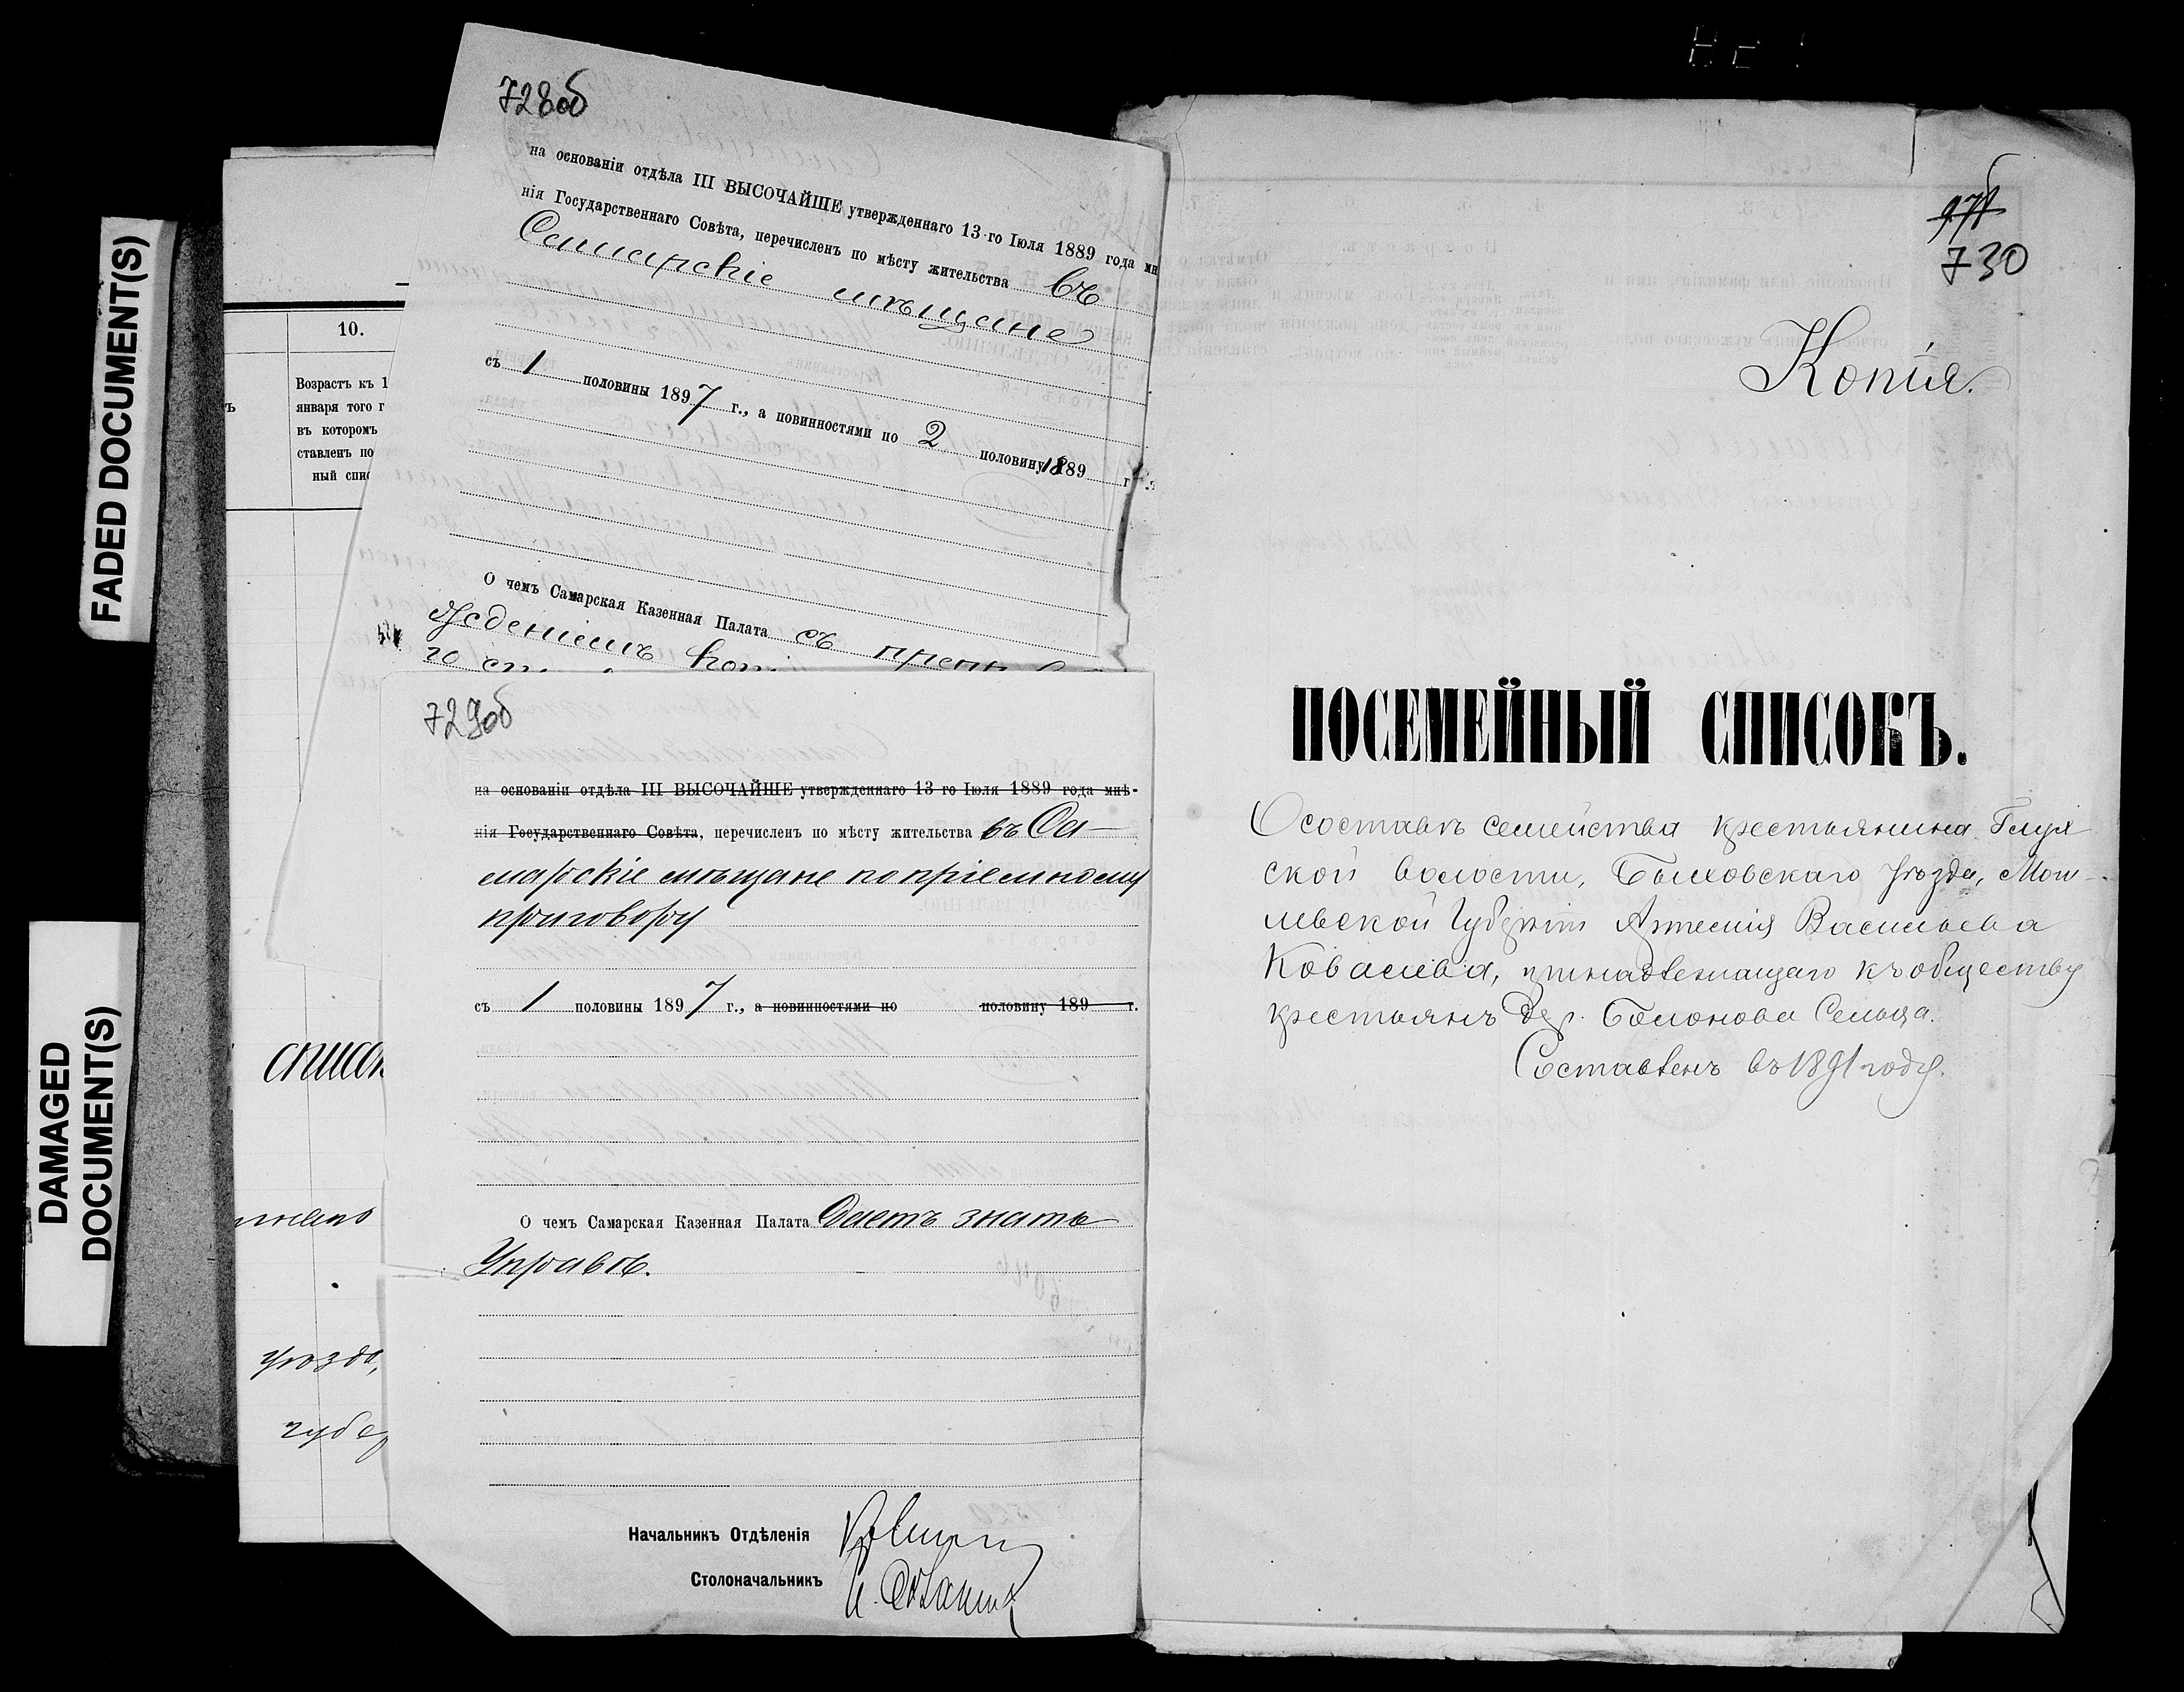 FADED DOCUMENT(S)
DAMAGED
DOCUMENT(S)
10.
Возрастъ къ 1
января того г
въ которомъ
ставленъ по
ный спис
списо
уѣзда,
губер
728об
на основаніи отдѣла III ВЫСОЧАЙШЕ утвержденнаго 13-го Іюля 1889 года мн
нія Государственнаго Совѣта, перечисленъ по мѣсту жительства въ
Самарскіе мѣщане
съ 1 половины 1897 г., а повинностями по 2 половину 189 г.
О чемъ Самарская Казенная Палата съ
729об
на основаніи отдѣла III ВЫСОЧАЙШЕ утвержденнаго 13 го Іюля 1889 года мнѣ-
нія Государственнаго Совѣта, перечисленъ по мѣсту жительства въ Са-
марскіе мѣщане по пріемному
приговору
съ 1 половины 1897 г., а повинностями по половину 189 г.
О чемъ Самарская Казенная Палата даетъ знать
Управѣ.
Начальникъ Отдѣленія
Столоначальникъ
730
Копія.
ПОСЕМЕЙНЫЙ СПИСОКЪ.
О составѣ семейства крестьянина Глух
ской волости, Быховскаго уѣзда, Моги-
левской Губерніи Артемія Васильева
Ковалева, принадлежащаго къ обществу
крестьянъ дер. Сельца.
Составленъ въ 1891 году.